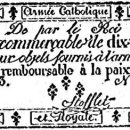 Armée Catholique
De par le Roi
commerçable de dix
aux objets fournis à l'arm
remboursable à la paix
Stofflet
et Royale.